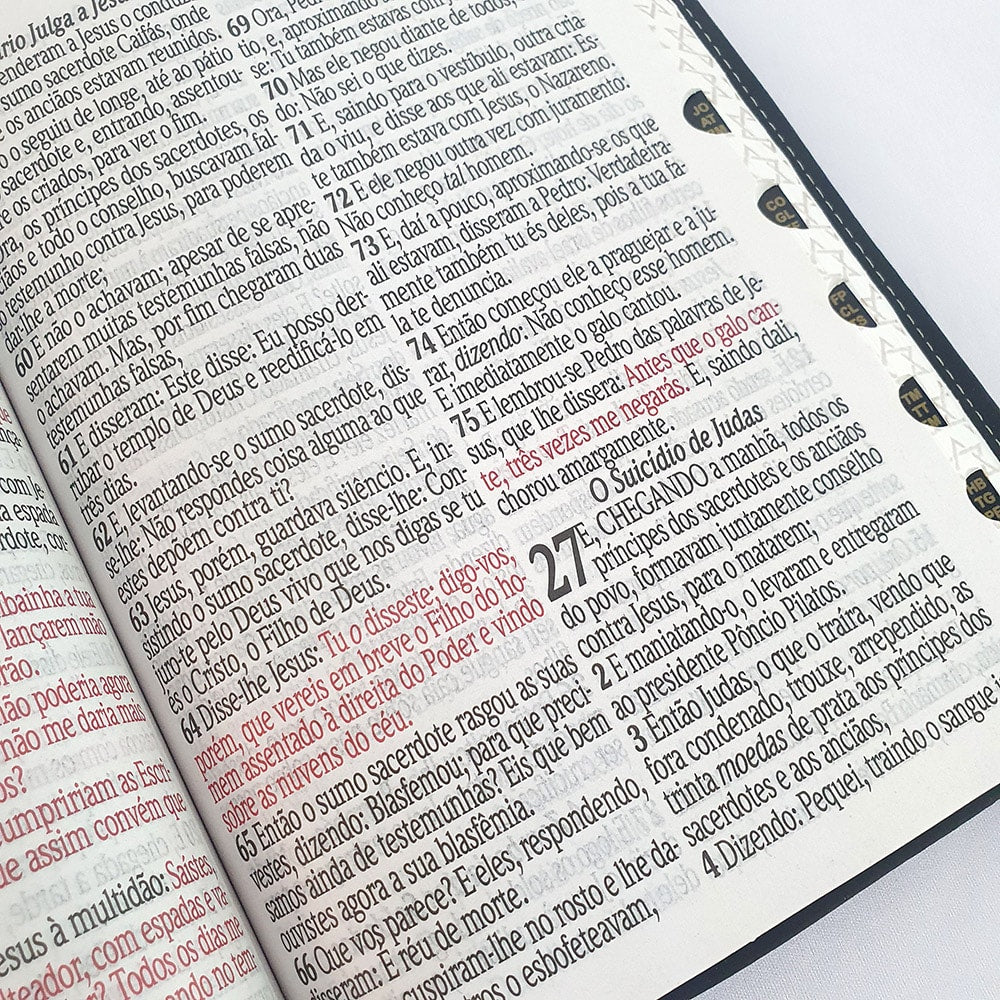 ário Julga a Jesus
enderam a Jesus o conduz
sumo sacerdote Caifás, onde
e os anciãos estavam reunidos.
o o seguiu de longe, até ao pátio
sacerdote e, entrando, assentou-
re os criados, para ver o fim.
ora, os príncipes dos sacerdotes, os
ciãos e todo o conselho, buscavam fal-
testemunho contra Jesus, para poderem
dar-lhe a morte;
60 E não o achavam; apesar de se apre-
sentarem muitas testemunhas falsas, não
o achavam. Mas, por fim chegaram duas
testemunhas falsas,
61 E disseram: Este disse: Eu posso der-
rubar o templo de Deus e reedificá-lo em
três dias.
62 E, levantando-se o sumo sacerdote, dis-
se-lhe: Não respondes coisa alguma ao que
estes depõem contra ti?
63 Jesus, porém, guardava silêncio. E, in-
sistindo o sumo sacerdote, disse-lhe: Con-
juro-te pelo Deus vivo que nos digas se tu
és o Cristo, o Filho de Deus.
64 Disse-lhe Jesus: Tu o disseste; digo-vos,
porém, que vereis em breve o Filho do ho-
mem assentado à direita do Poder e vindo
sobre as nuvens do céu.
65 Então o sumo sacerdote rasgou as suas
vestes, dizendo: Blasfemou; para que preci-
samos ainda de testemunhas? Eis que bem
ouvistes agora a sua blasfêmia.
66 Que vos parece? E eles, respondendo,
disseram: É réu de morte.
cuspiram-lhe no rosto e lhe da-
os o esbofeteavam,
69 Ora, Pe
tio, e, aproximando
se: Tu também estavas com Je
70 Mas ele negou diante de todos,
do: Não sei o que dizes.
71 E, saindo para o vestíbulo, outra cria-
da o viu, e disse aos que ali estavam: Es-
te também estava com Jesus, o Nazareno.
72 E ele negou outra vez com juramento:
Não conheço tal homem.
73 E, daí a pouco, aproximando-se os que
ali estavam, disseram a Pedro: Verdadeira-
mente também tu és deles, pois a tua fa-
la te denuncia.
74 Então começou ele a praguejar e a ju-
rar, dizendo: Não conheço esse homem.
E imediatamente o galo cantou.
75 E lembrou-se Pedro das palavras de Je-
sus, que lhe dissera: Antes que o galo can-
te, três vezes me negarás. E, saindo dali,
chorou amargamente.
O Suicídio de Judas
27 E, CHEGANDO a manhã, todos os
príncipes dos sacerdotes e os anciãos
do povo, formavam juntamente conselho
contra Jesus, para o matarem;
2 E maniatando-o, o levaram e entregaram
ao presidente Pôncio Pilatos.
3 Então Judas, o que o traíra, vendo que
fora condenado, trouxe, arrependido, as
trinta moedas de prata aos príncipes dos
sacerdotes e aos anciãos,
4 Dizendo: Pequei, traindo o sangue i
JO
AT
RM
CO
GL
FP
CL
TS
TM
TT
FM
HB
TG
PE
com Je
espada
rdote, cor-
bainha a tua
lançarem mão
rão.
não poderia agora
não me daria mais
os?
umpririam as Escri
de assim convém que
esus à multidão: Saístes
lteador, com espadas e va-
r? Todos os dias me
ando no tem-